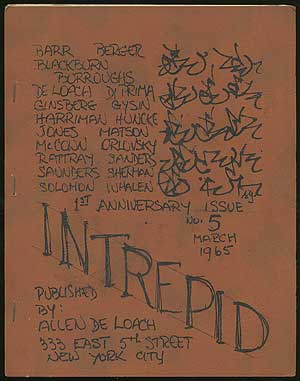 BARR BERGER
BLACKBURN
BURROUGHS
DE LOACH DI PRIMA
GINSBERG GYSIN
HARRIMAN HUNCKE
JONES MATSON
MCCONN ORLOVSKY
RATTRAY SANDERS
SAUNDERS SHERMAN
SOLOMON WHALEN
1ST ANNIVERSARY ISSUE
NO. 5
MARCH
1965
INTREPID
PUBLISHED
BY:
ALLEN DE LOACH
333 EAST 5TH STREET
NEW YORK CITY